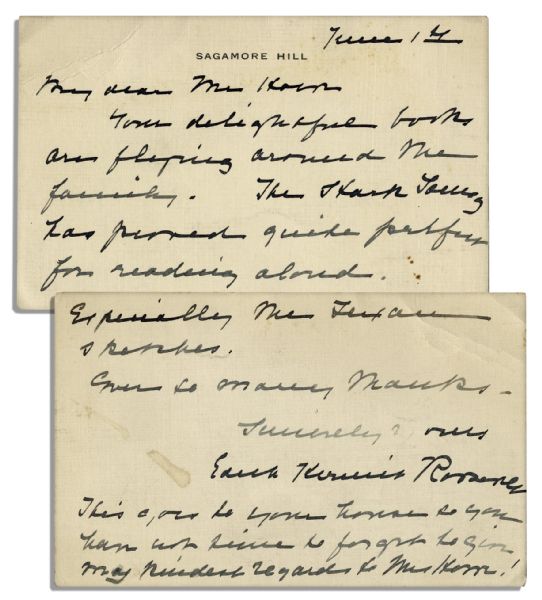 June 1st
SAGAMORE HILL
My dear Mr
Your delightful books
are flying around the
family. The Stark Young
has proved quite perfect
for reading aloud.
Especially the Texan
sketches.
Ever so many thanks -
Sincerely yours
Edith Kermit Roosevelt
This goes to your house so you
have not time to forget to give
my kindest regards to Mrs !